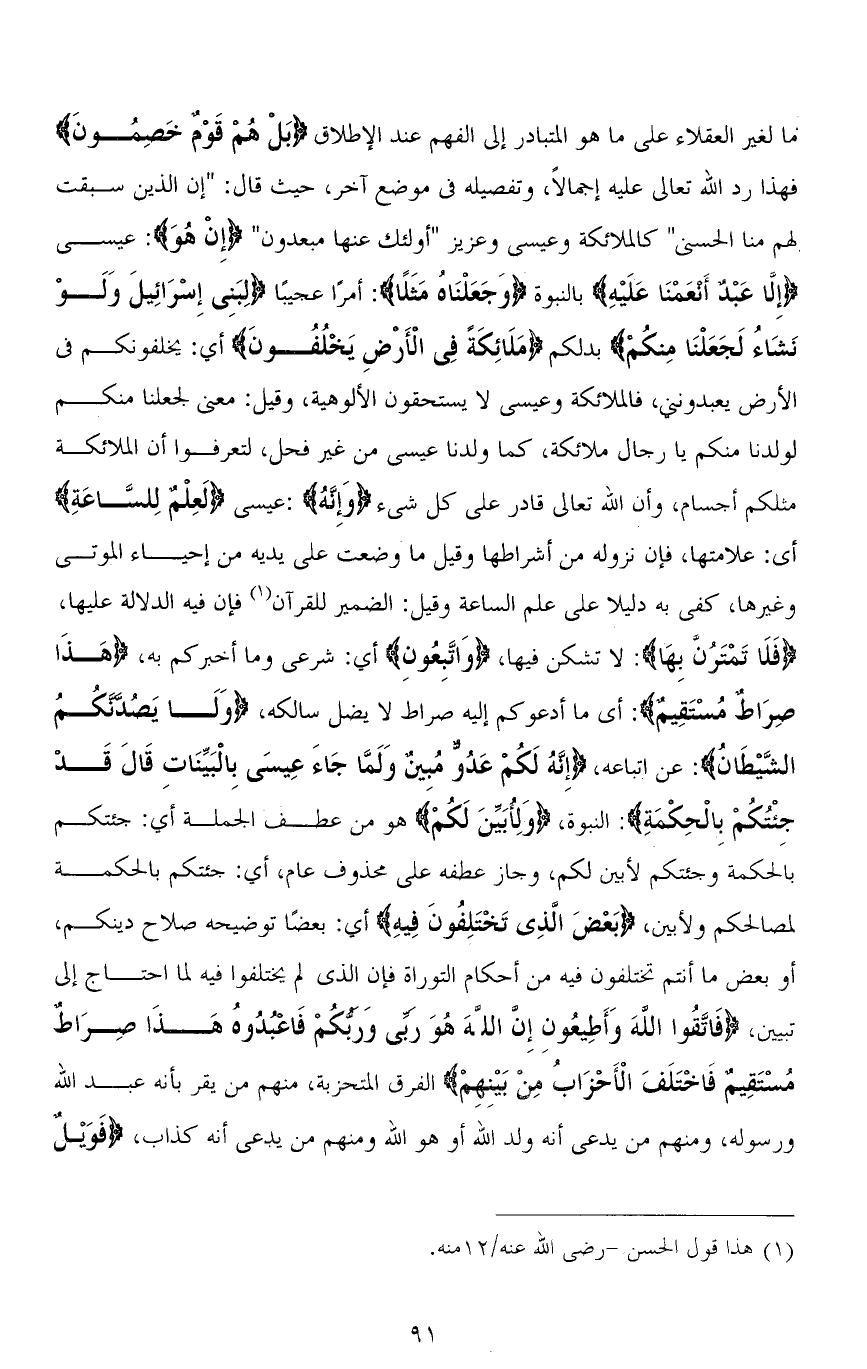 ما لغير العقلاء على ما هو المتبادر إلى الفهم عند الإطلاق ﴿بَلْ هُمْ قَوْمٌ خَصِمُونَ﴾
فهذا رد الله تعالى عليه إجمالاً، وتفصيله فى موضع آخر، حيث قال: "إن الذين سبقت
لهم منا الحسنى" كالملائكة وعيسى وعزيز "أولئك عنها مبعدون" ﴿إِنْ هُوَ﴾: عيسى
﴿إِلَّا عَبْدٌ أَنْعَمْنَا عَلَيْهِ﴾ بالنبوة ﴿وَجَعَلْنَاهُ مَثَلًا﴾: أمرًا عجيبًا ﴿لِبَنِى إِسْرَائِيلَ وَلَوْ
نَشَاءُ لَجَعَلْنَا مِنكُمْ﴾ بدلكم ﴿مَلَائِكَةً فِى الْأَرْضِ يَخْلُفُونَ﴾ أي: يخلفونكم فى
الأرض يعبدونني، فالملائكة وعيسى لا يستحقون الألوهية، وقيل: معنى لجعلنا منكم
لولدنا منكم يا رجال ملائكة، كما ولدنا عيسى من غير فحل، لتعرفوا أن الملائكة
مثلكم أجسام، وأن الله تعالى قادر على كل شىء ﴿وَإِنَّهُ﴾ :عيسى ﴿لَعِلْمٌ لِلسَّاعَةِ﴾
أى: علامتها، فإن نزوله من أشراطها وقيل ما وضعت على يديه من إحياء الموتى
وغيرها، كفى به دليلا على علم الساعة وقيل: الضمير للقرآن(١) فإن فيه الدلالة عليها،
﴿فَلَا تَمْتَرُنَّ بِهَا﴾: لا تشكن فيها، ﴿وَاتَّبِعُونِ﴾ أي: شرعى وما أخبركم به، ﴿هَذَا
صِرَاطٌ مُسْتَقِيمٌ﴾: أى ما أدعوكم إليه صراط لا يضل سالكه، ﴿وَلَا يَصُدَّنَّكُمُ
الشَّيْطَانُ﴾: عن اتباعه، ﴿إِنَّهُ لَكُمْ عَدُوٌّ مُبِينٌ وَلَمَّا جَاءَ عِيسَى بِالْبَيِّنَاتِ قَالَ قَدْ
جِئْتُكُمْ بِالْحِكْمَةِ﴾: النبوة، ﴿وَلِأُبَيِّنَ لَكُمْ﴾ هو من عطف الجملة أي: جئتكم
بالحكمة وجئتكم لأبين لكم، وجاز عطفه على محذوف عام، أي: جئتكم بالحكمة
لمصالحكم ولأبين، ﴿بَعْضَ الَّذِى تَخْتَلِفُونَ فِيهِ﴾ أي: بعضًا توضيحه صلاح دينكم،
أو بعض ما أنتم تختلفون فيه من أحكام التوراة فإن الذى لم يختلفوا فيه لما احتاج إلى
تبيين، ﴿فَاتَّقُوا اللَّهَ وَأَطِيعُونِ إِنَّ اللَّهَ هُوَ رَبِّى وَرَبُّكُمْ فَاعْبُدُوهُ هَذَا صِرَاطٌ
مُسْتَقِيمٌ فَاخْتَلَفَ الْأَحْزَابُ مِنْ بَيْنِهِمْ﴾ الفرق المتحزبة، منهم من يقر بأنه عبد الله
ورسوله، ومنهم من يدعى أنه ولد الله أو هو الله ومنهم من يدعى أنه كذاب، ﴿فَوَيْلٌ
(١) هذا قول الحسن -رضى الله عنه/١٢منه.
٩١